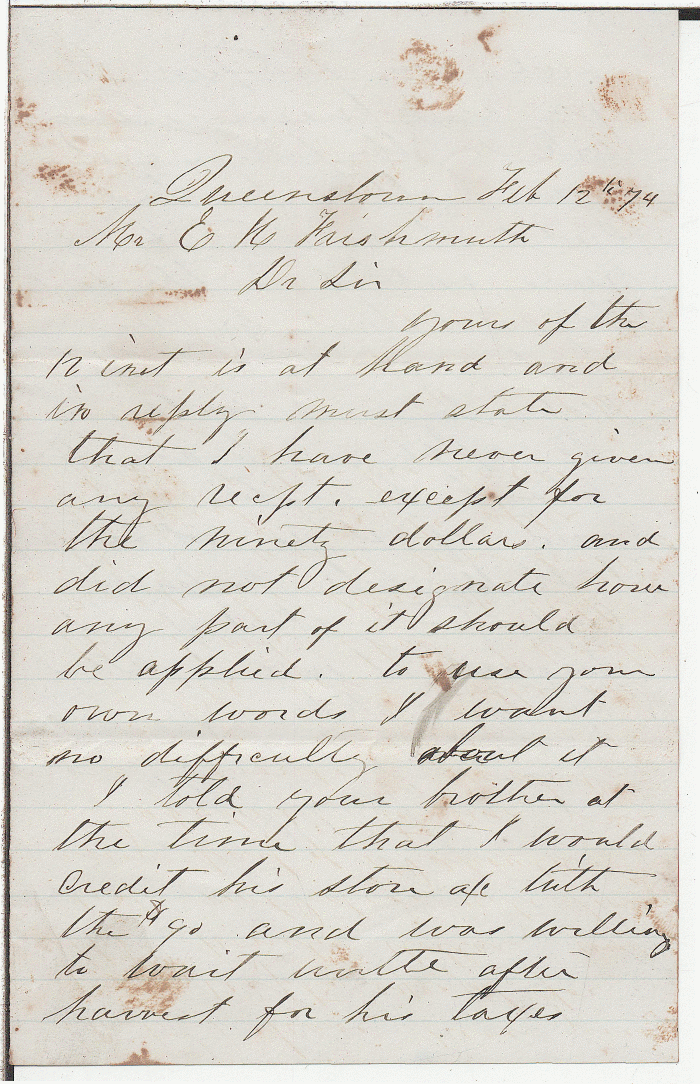 Queenstown Feb 12th 74
Mr E K Frishmuth
Dr Sir
yours of the
12 inst is at hand and
in reply must state
that I have never given
any recpt. except for
the ninety dollars. and
did not designate how
any part of it should
be applied. to use your
own words I want
no difficulty about it
I told your brother at
the time that I would
credit his store ac with
the $90 and was willing
to wait untill after
harvest for his taxes